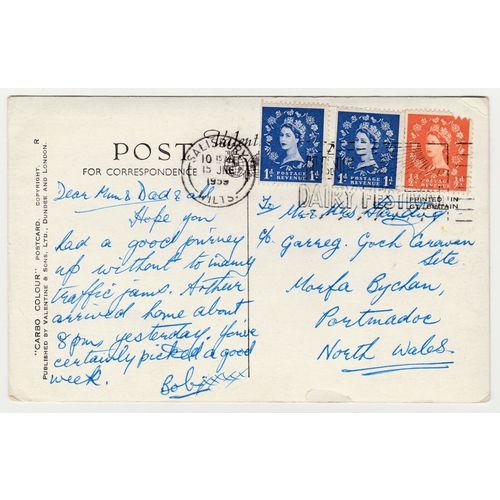 POST
FOR CORRESPONDENCE
Valent
SALISBURY
10 15 AM
15 JNE
1959
WILTS.
DAIRY FESTIV
POSTAGE REVENUE
1D 1D
POSTAGE REVENUE
1D 1D
½D ½D
PRINTED IN
GT. BRITAIN
"CARBO COLOUR" POSTCARD. COPYRIGHT. R
PUBLISHED BY VALENTINE & SONS, LTD., DUNDEE AND LONDON.
Dear Mum & Dad & all
Hope you
had a good journey
up without to many
traffic jams. Arthur
arrived home about
8pm yesterday, You've
certainly picked a good
week. Bob xxxxx
To Mr & Mrs
c/o Garreg. Goch Caravan
Site
Morfa Bychan,
Portmadoc
North Wales.